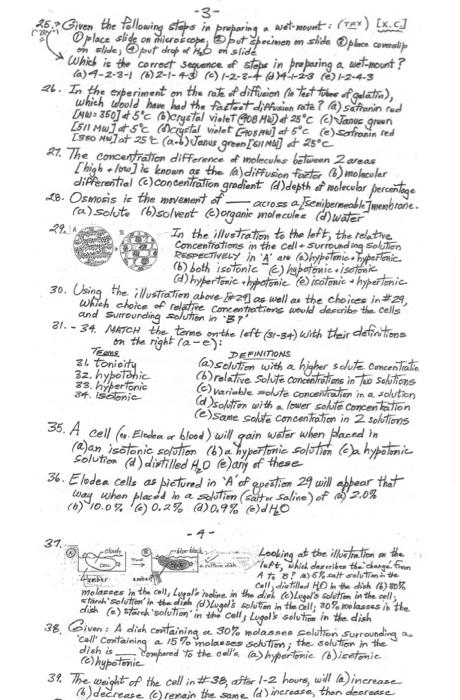 -3-
25. Given the following steps in preparing a wet-mount: (TRY) [X.C.]
(TRY!) ① place slide on microscope, ② put specimen on slide ③ place coverslip
on slide, ④ put drop of H2O on slide
Which is the correct sequence of steps in preparing a wet-mount?
(a) 4-2-3-1 (b) 2-1-4-3 (c) 1-2-3-4 (d) 4-1-2-3 (e) 1-2-4-3
26. In the experiment on the rate of diffusion (in test tubes of gelatin),
which would have had the fastest diffusion rate? (a) Safranin red
[MW=350] at 5°c (b) crystal violet [408 MW] at 25°c (c) Janus green
[511 MW] at 5°c (d) crystal violet [408 MW] at 5°c (e) Safranin red
[350 MW] at 25°c (a+b) Janus green [511 MW] at 25°c
27. The concentration difference of molecules between 2 areas
[high + low] is known as the (a) diffusion factor (b) molecular
differential (c) concentration gradient (d) depth of molecular percentage
28. Osmosis is the movement of ___ across a [semipermeable] membrane.
(a) solute (b) solvent (c) organic molecules (d) water
29. A B In the illustration to the left, the relative
concentrations in the cell + surrounding solution
RESPECTIVELY in 'A' are (a) hypotonic + hypertonic
(b) both isotonic (c) hypotonic + isotonic
(d) hypertonic + hypotonic (e) isotonic + hypertonic
30. Using the illustration above [#29] as well as the choices in #29,
which choice of relative concentrations would describe the cells
and surrounding solution in 'B?'
31. - 34. MATCH the terms on the left (31-34) with their definitions
on the right (a-e):
TERMS DEFINITIONS
31. tonicity (a) solution with a higher solute concentration
32. hypotonic (b) relative solute concentrations in two solutions
33. hypertonic (c) variable solute concentration in a solution
34. isotonic (d) solution with a lower solute concentration
(e) same solute concentration in 2 solutions
35. A cell (ex. Elodea or blood) will gain water when placed in
(a) an isotonic solution (b) a hypertonic solution (c) a hypotonic
solution (d) distilled H2O (e) any of these
36. Elodea cells as pictured in 'A' of question 29 will appear that
way when placed in a solution (salt or saline) of (a) 2.0%
(b) 10.0% (c) 0.2% (d) 0.9% (e) dH2O
-4-
37. A cloudy cell amber B blue-black amber
Looking at the illustration on the
left, which describes the change from
A to B? (a) 5% salt solution in the
cell, distilled H2O in the dish (b) 30%
molasses in the cell, Lugol's iodine in the dish (c) Lugol's solution in the cell;
starch solution in the dish (d) Lugol's solution in the cell; 30% molasses in the
dish (e) starch solution in the cell, Lugol's solution in the dish
38. Given: A dish containing a 30% molasses solution surrounding a
'cell' containing a 15% molasses solution; the solution in the
dish is ___ compared to the cell's (a) hypertonic (b) isotonic
(c) hypotonic
39. The weight of the cell in #38, after 1-2 hours, will (a) increase
(b) decrease (c) remain the same (d) increase, then decrease